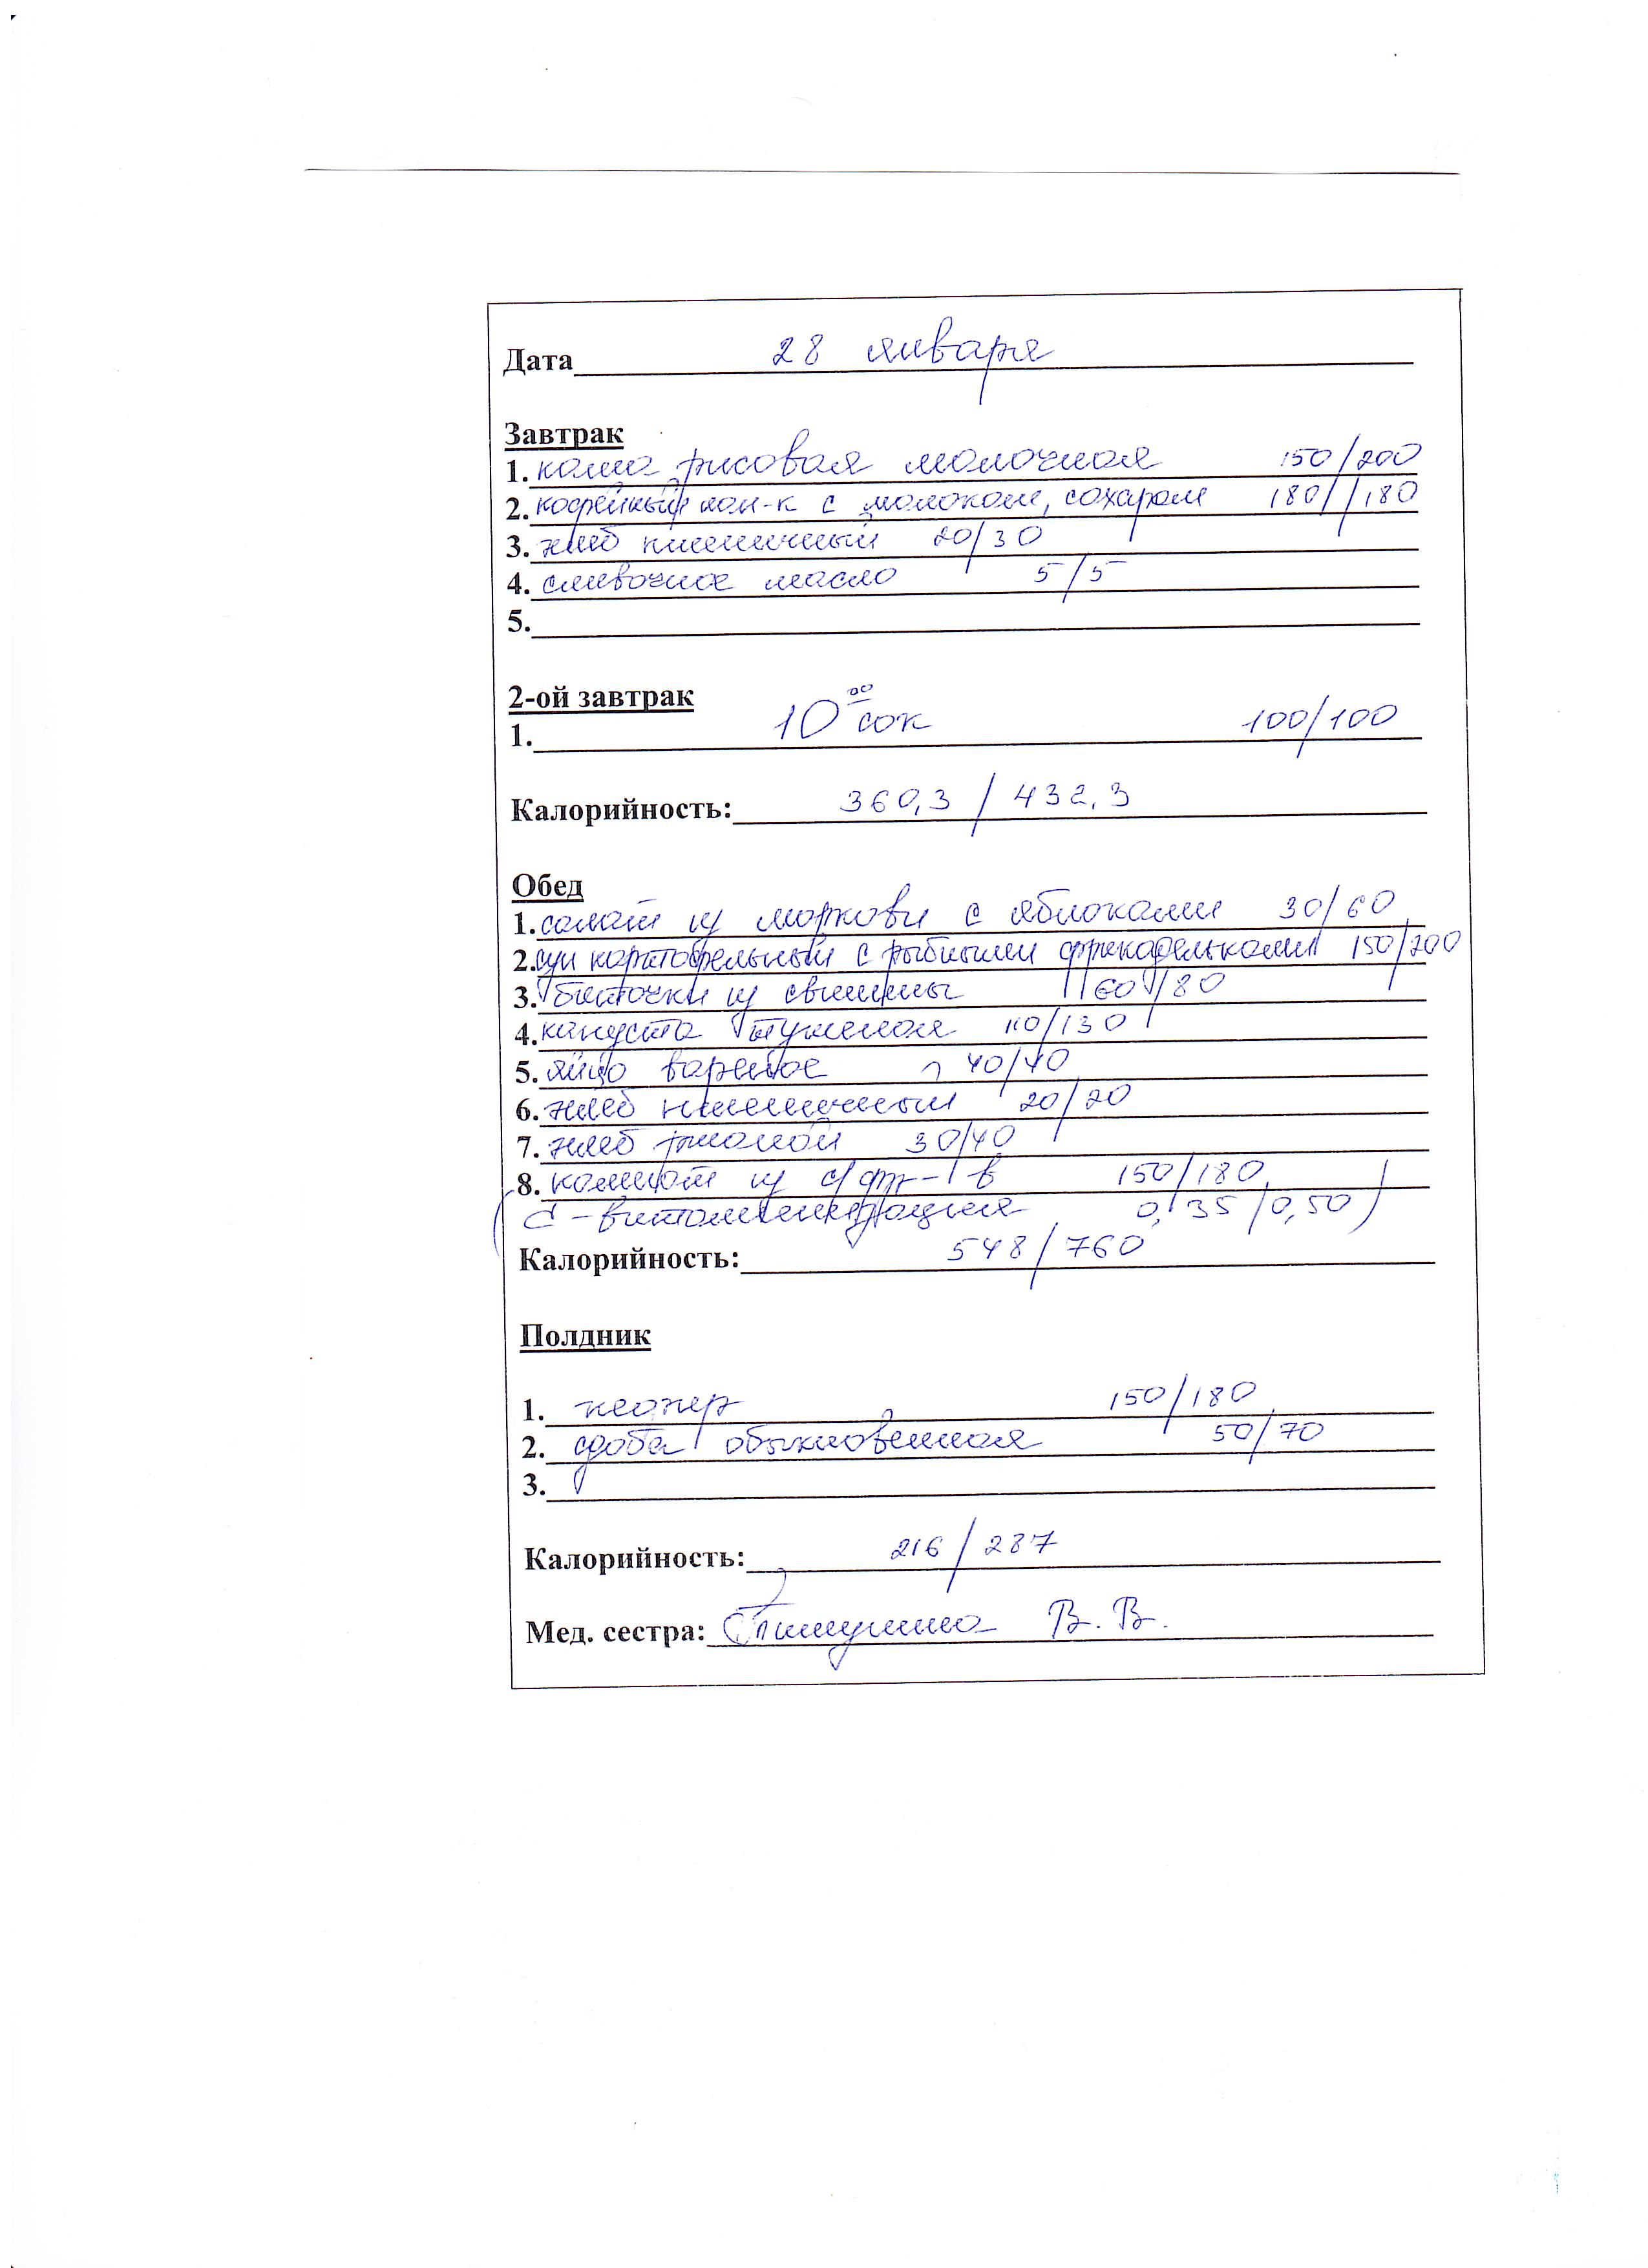 Дата 28 января
Завтрак
1. каша рисовая молочная 150/200
2. кофейный нап-к с молоком, сахаром 180/180
3. хлеб пшеничный 20/30
4. сливочное масло 5/5
5.
2-ой завтрак
1. 10⁰⁰ сок 100/100
Калорийность: 360,3 / 432,3
Обед
1. салат из моркови с яблоками 30/60
2. суп картофельный с рыбными фрикадельками 150/200
3. биточки из свинины 60/80
4. капуста тушеная 110/130
5. яйцо вареное 40/40
6. хлеб пшеничный 20/20
7. хлеб ржаной 30/40
8. компот из с/фр-в 150/180
(С-витаминизация 0,35/0,50)
Калорийность: 548/760
Полдник
1. кефир 150/180
2. сдоба обыкновенная 50/70
3.
Калорийность: 216/287
Мед. сестра: В.В.